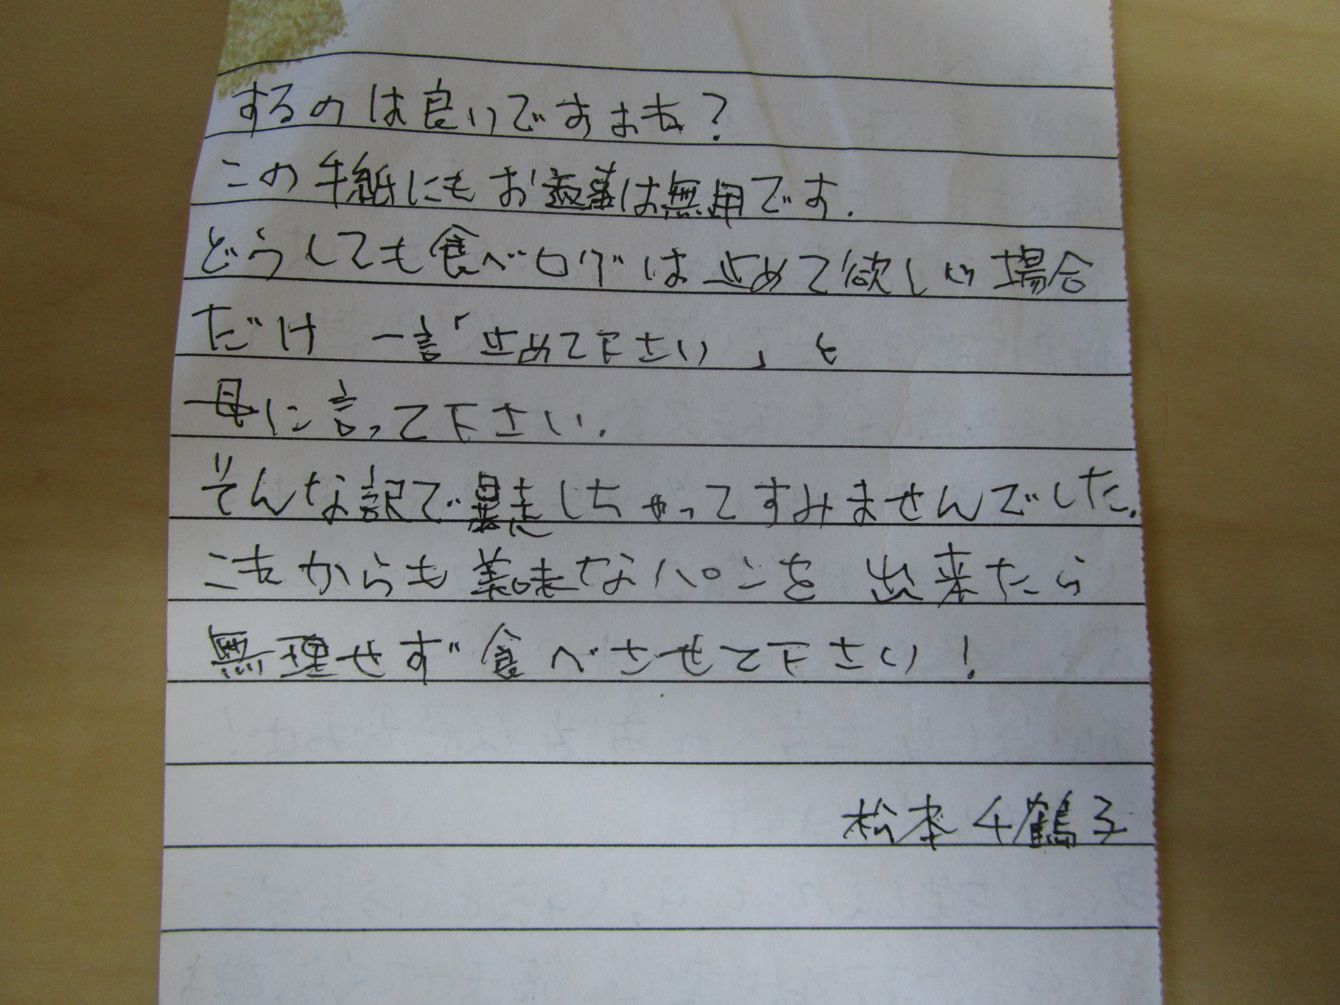 するのは良いですよね?
この手紙にもお返事は無用です.
どうしても食べログは止めて欲しい場合
だけ 一言「止めて下さい」と
母に言って下さい.
そんな訳で暴走しちゃってすみませんでした.
これからも美味なパンを 出来たら
無理せず食べさせて下さい!
松本千鶴子